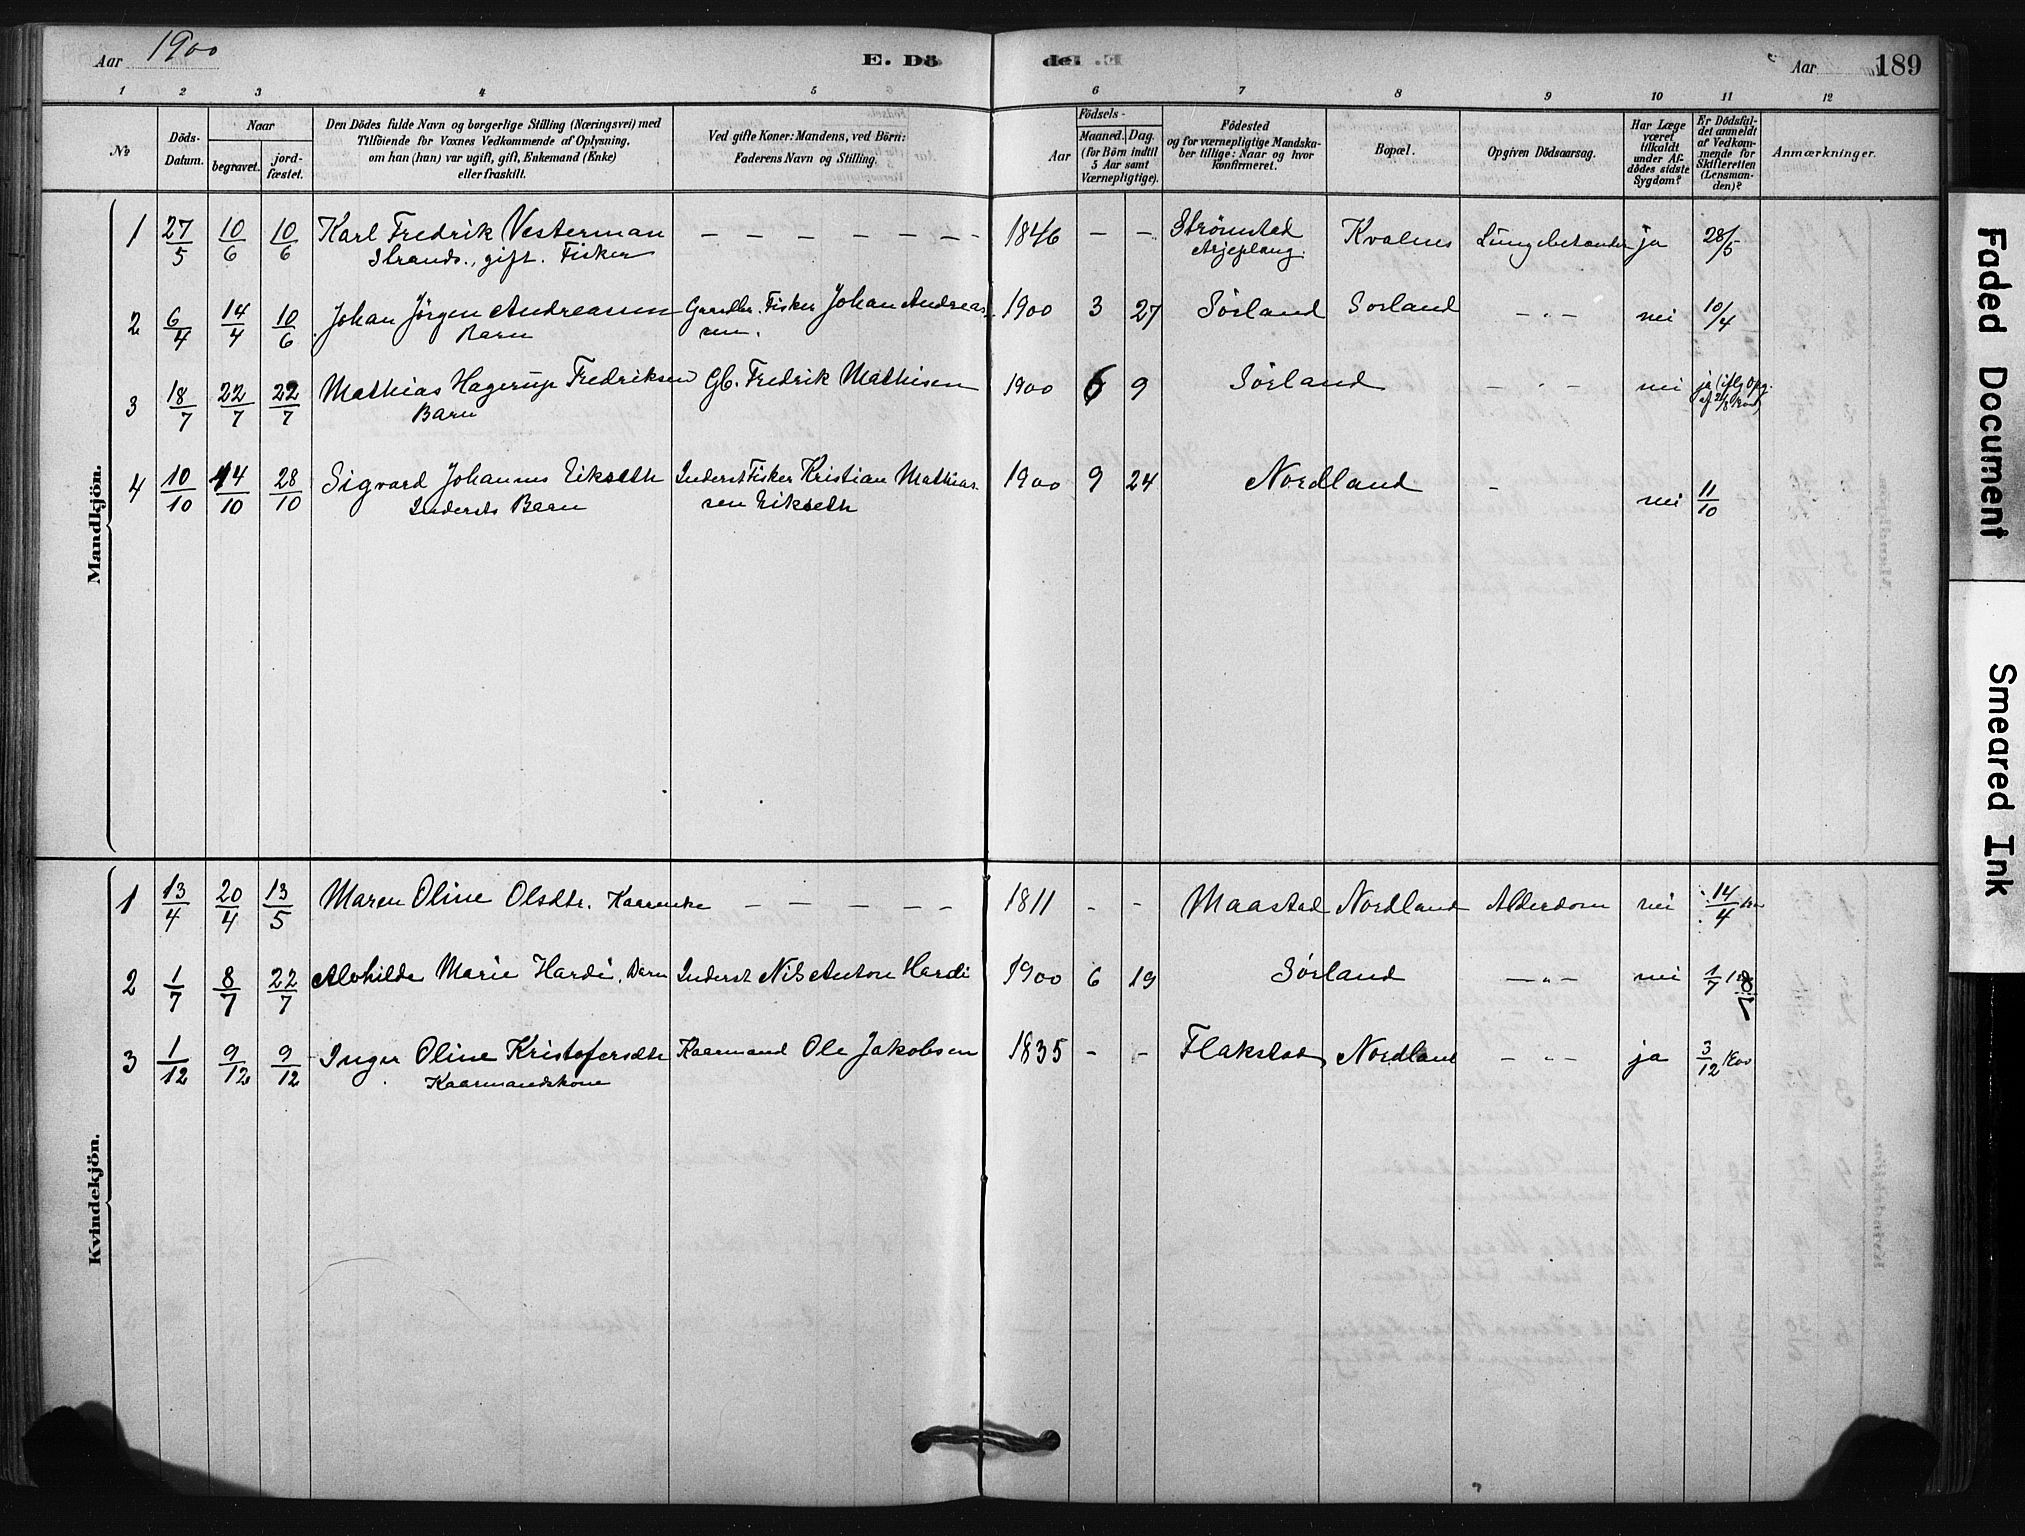 Aar 1900 E. Döde. Aar 189
1 2 3 4 5 6 7 8 9 10 11 12
№
Döds-Datum.
Naar
begravet.
jord-fæstet.
Den Dödes fulde Navn og borgerlige Stilling (Næringsvei) med
Tilföiende for Voxnes Vedkommende af Oplysning,
om han (hun) var ugift, gift, Enkemand (Enke)
eller fraskilt.
Ved gifte Koner: Mandens, ved Börn:
Faderens Navn og Stilling.
Födsels-
Aar
Maaned. Dag.
(for Börn indtil
5 Aar samt
Værnepligtige).
Födested
og for værnepligtige Mandska-
ber tillige: Naar og hvor
konfirmeret.
Bopæl.
Opgiven Dödsaarsag.
Har Læge
været
tilkaldt
under Af-
dödes sidste
Sygdom?
Er Dödsfal-
det anmeldt
af Vedkom-
mende for
Skifteretten
(Lensman-
den)?
Anmærkninger.
Mandkjön.
1 27/5 10/6 10/6 Karl Fredrik Vesterman – – – – – – – 1846 – – Strømstad Kvalnes Lungebetændn ja 28/5
Strands., gift. Fisker Arjeplaug.
2 6/4 14/4 10/6 Johan Jörgen Andreassen Gaardbr. Fisker Johan Andreas- 1900 3 27 Sörland Sörland – " – nei 10/4
Barn sen.
3 18/7 22/7 22/7 Mathias Hagerup Fredriksen Gb. Fredrik Mathisen 1900 6 9 Sörland – " – nei ja (iflg. Opg.
Barn
4 10/10 14/10 28/10 Sigvard Johannes Eikseth Inderst Fisker Kristian Mathias- 1900 9 24 Nordland – nei 11/10
Indersts Barn sen Eikseth
Kvindekjön.
1 13/4 20/4 13/5 Maren Oline Olsdtr. Kaarenke – – – – – 1811 – – Maastad Nordland Alderdom nei 14/4
2 1/7 8/7 22/7 Alvhilde Marie Hardi, Barn Inderst Nils Anton Hardi 1900 6 19 Sörland – " – nei 1/7
3 1/12 9/12 9/12 Inger Oline Kristofersdtr Kaarmand Ole Jakobsen 1835 – – Flakstad Nordland – " – ja 3/12 1900
Kaarmandskone
Faded Document
Smeared Ink